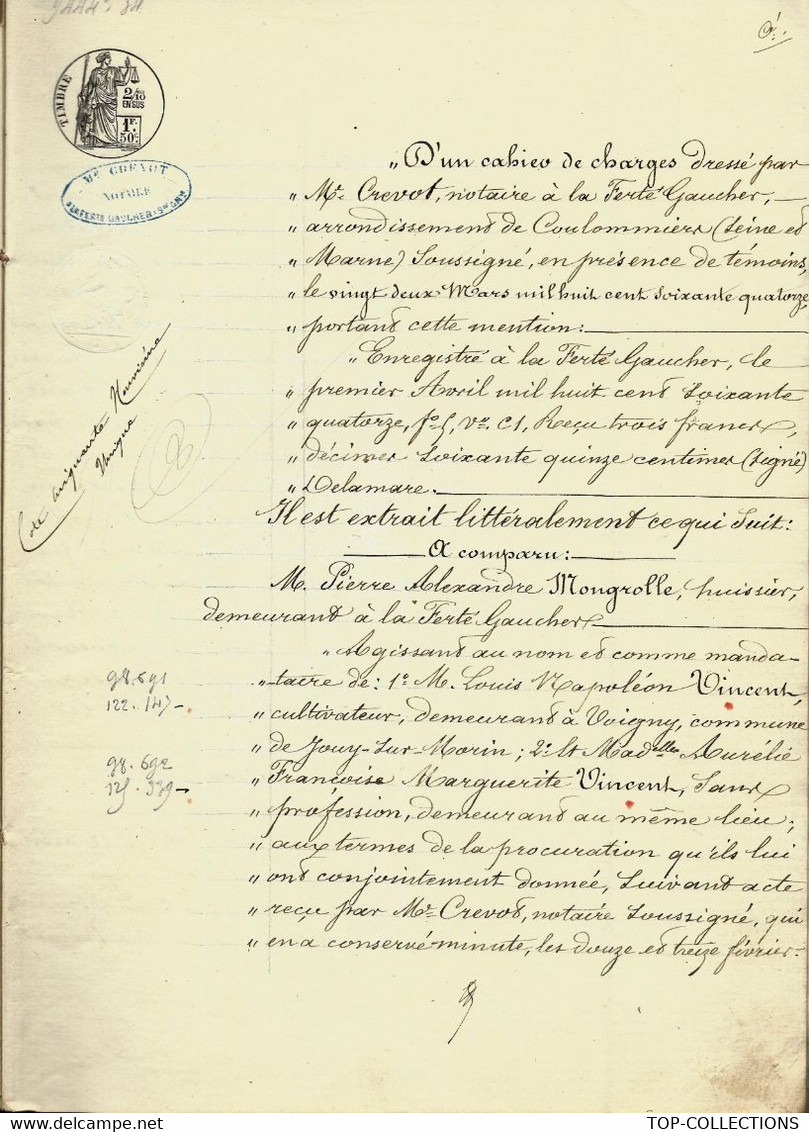 TIMBRE
2/10
EN SUS
1F.
50c.
Me CREVOT
NOTAIRE
„ D'un cahier de charges dressé par
„ Me. Crevot, notaire à la Ferté Gaucher,
„ arrondissement de Coulommiers (Seine et
„ Marne) Soussigné, en présence de témoins,
„ le vingt deux Mars mil huit cent soixante quatorze,
„ portant cette mention:
„ Enregistré à la Ferté Gaucher, le
„ premier Avril mil huit cent soixante
„ quatorze, fo 5, vo. C1, Reçu trois francs,
„ décimes soixante quinze centimes (Signé)
„ Delamare.
Il est extrait littéralement ce qui suit:
A comparu:
M. Pierre Alexandre Mongrolle, huissier,
demeurant à la Ferté Gaucher
„ Agissant au nom et comme manda-
„ taire de: 1o. M. Louis Napoléon Vincent,
„ cultivateur, demeurant à Voigny, commune
„ de Jouy-sur-Morin; 2o. et Madelle Aurélie
„ Françoise Marguerite Vincent, sans
„ profession, demeurant au même lieu;
„ aux termes de la procuration qu'ils lui
„ ont conjointement donnée, suivant acte
„ reçu par Me. Crevot, notaire soussigné, qui
„ en a conservé minute, les douze et treize février
Cote cinquante Neuvième
Unique
98.691
122.147-
98.692
125.339-
TOP-COLLECTIONS